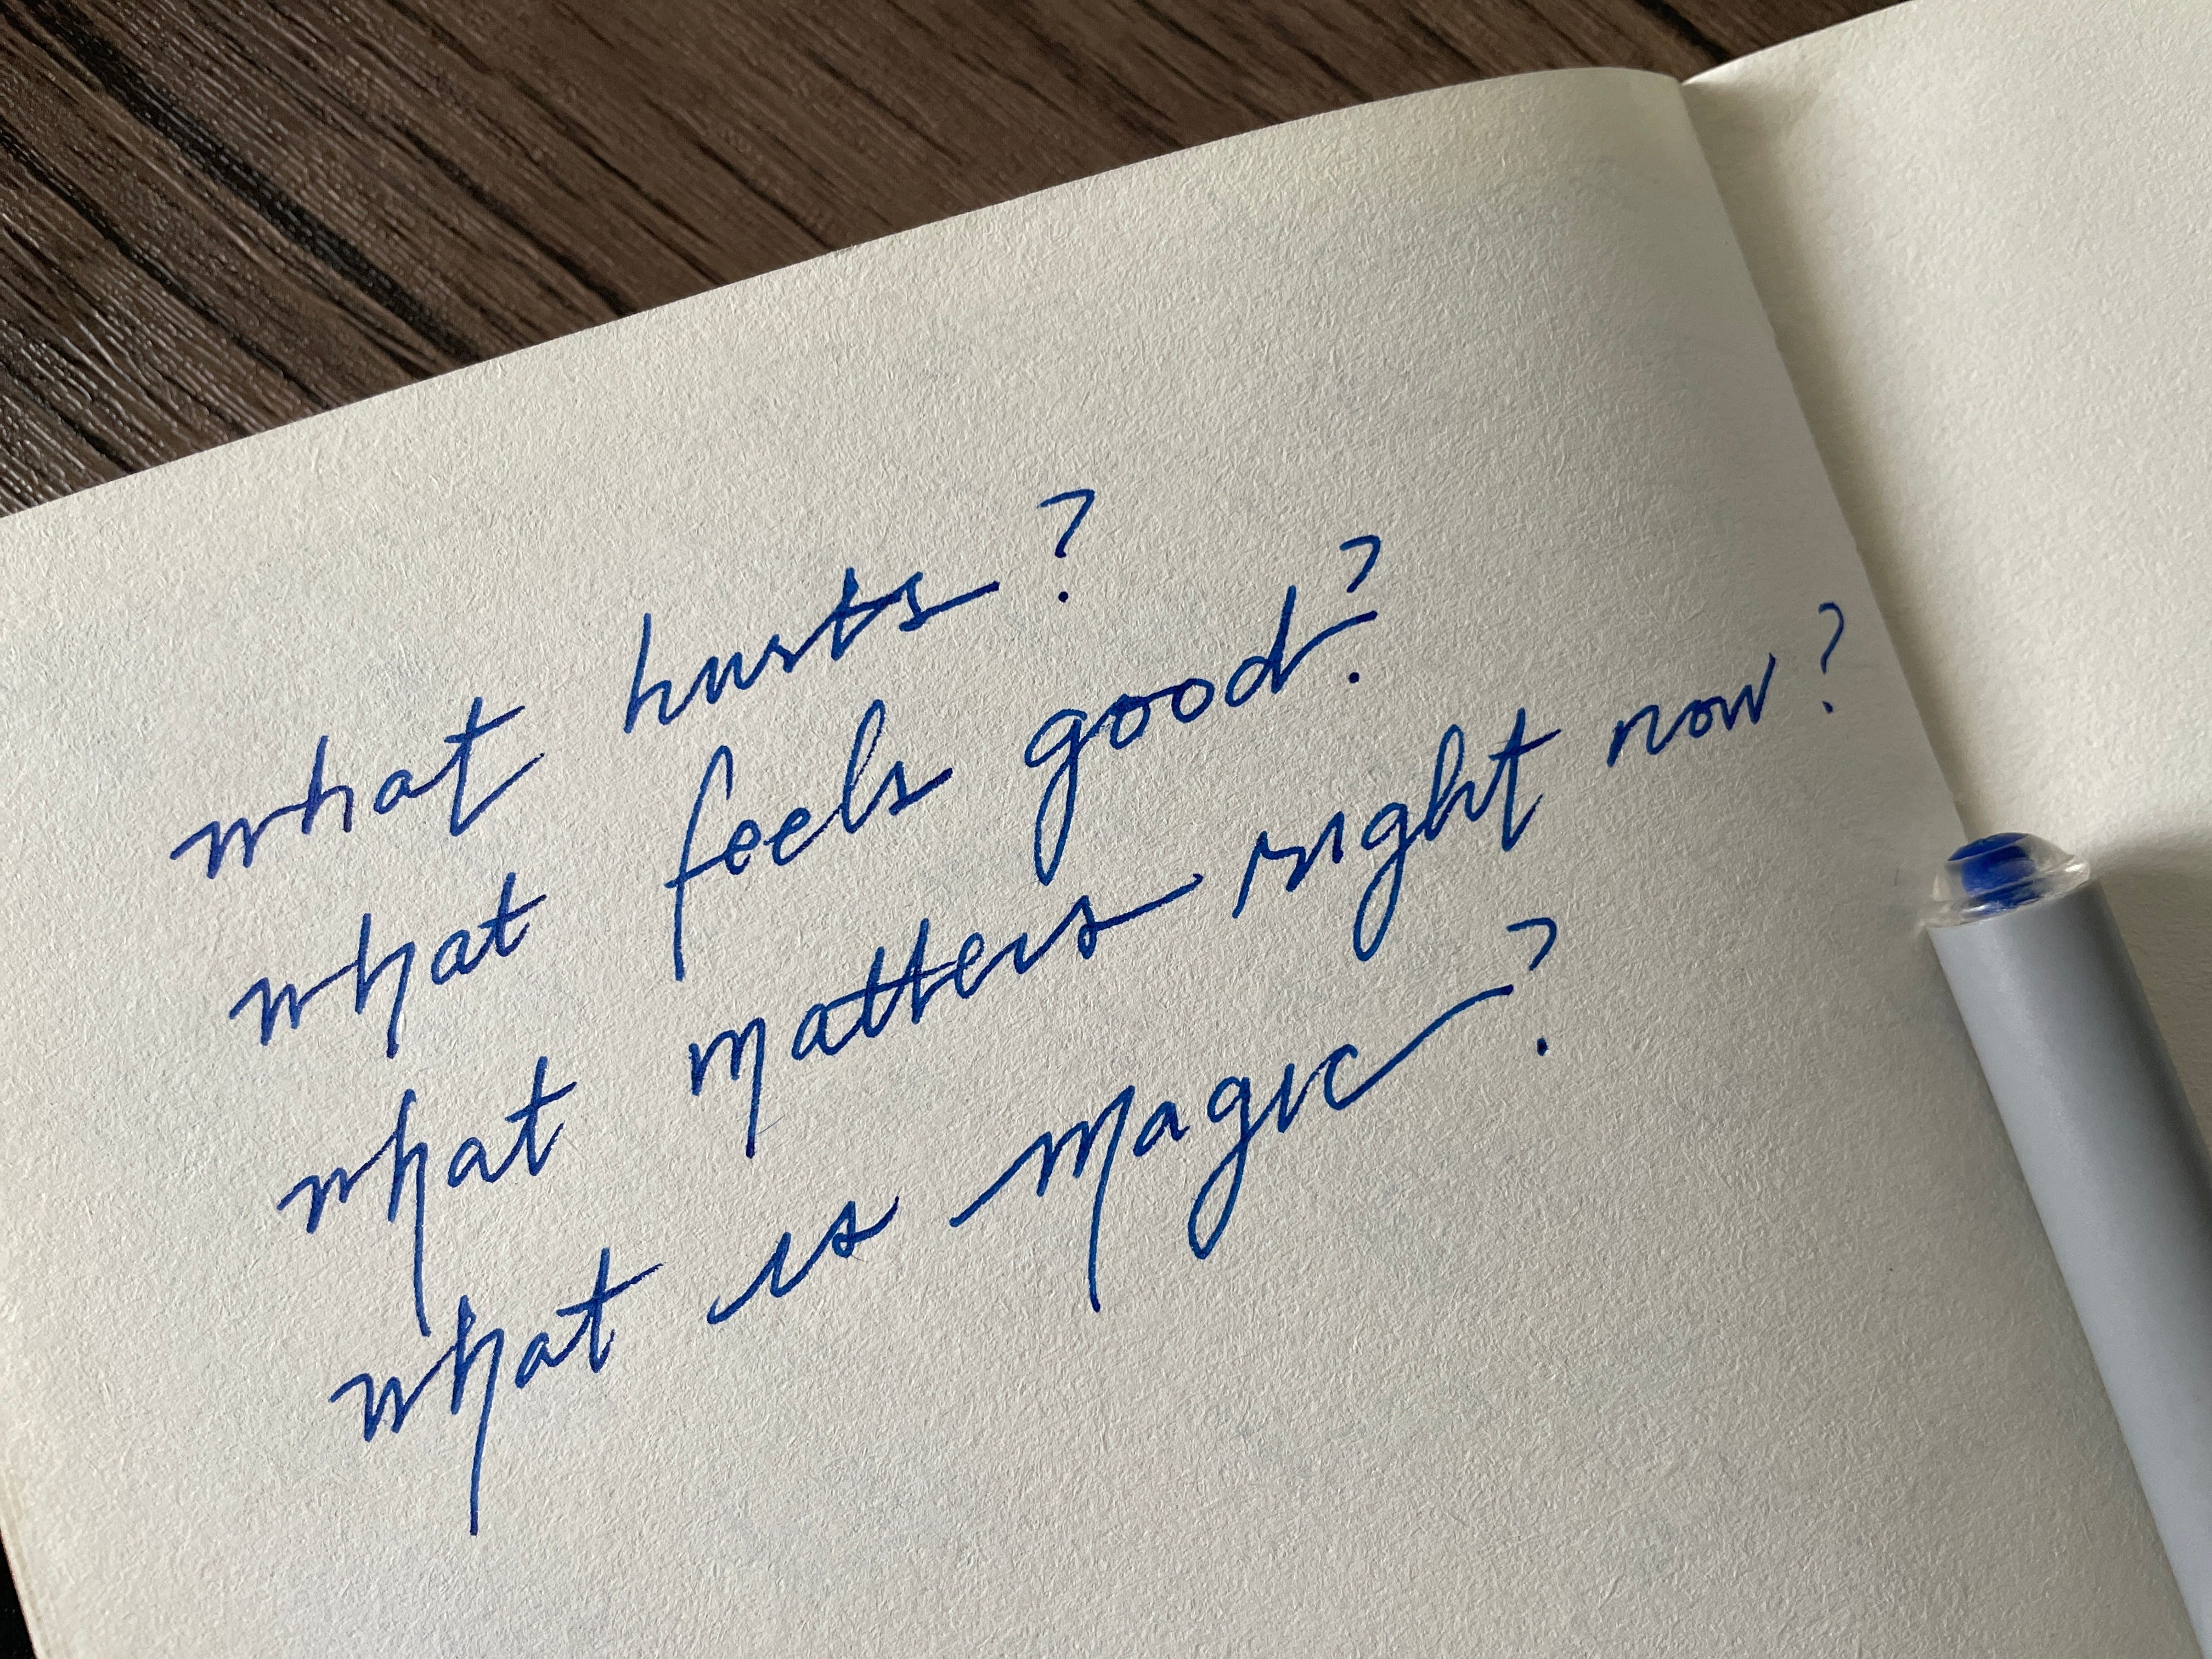 what hurts?
what feels good?
what matters right now?
what is magic?